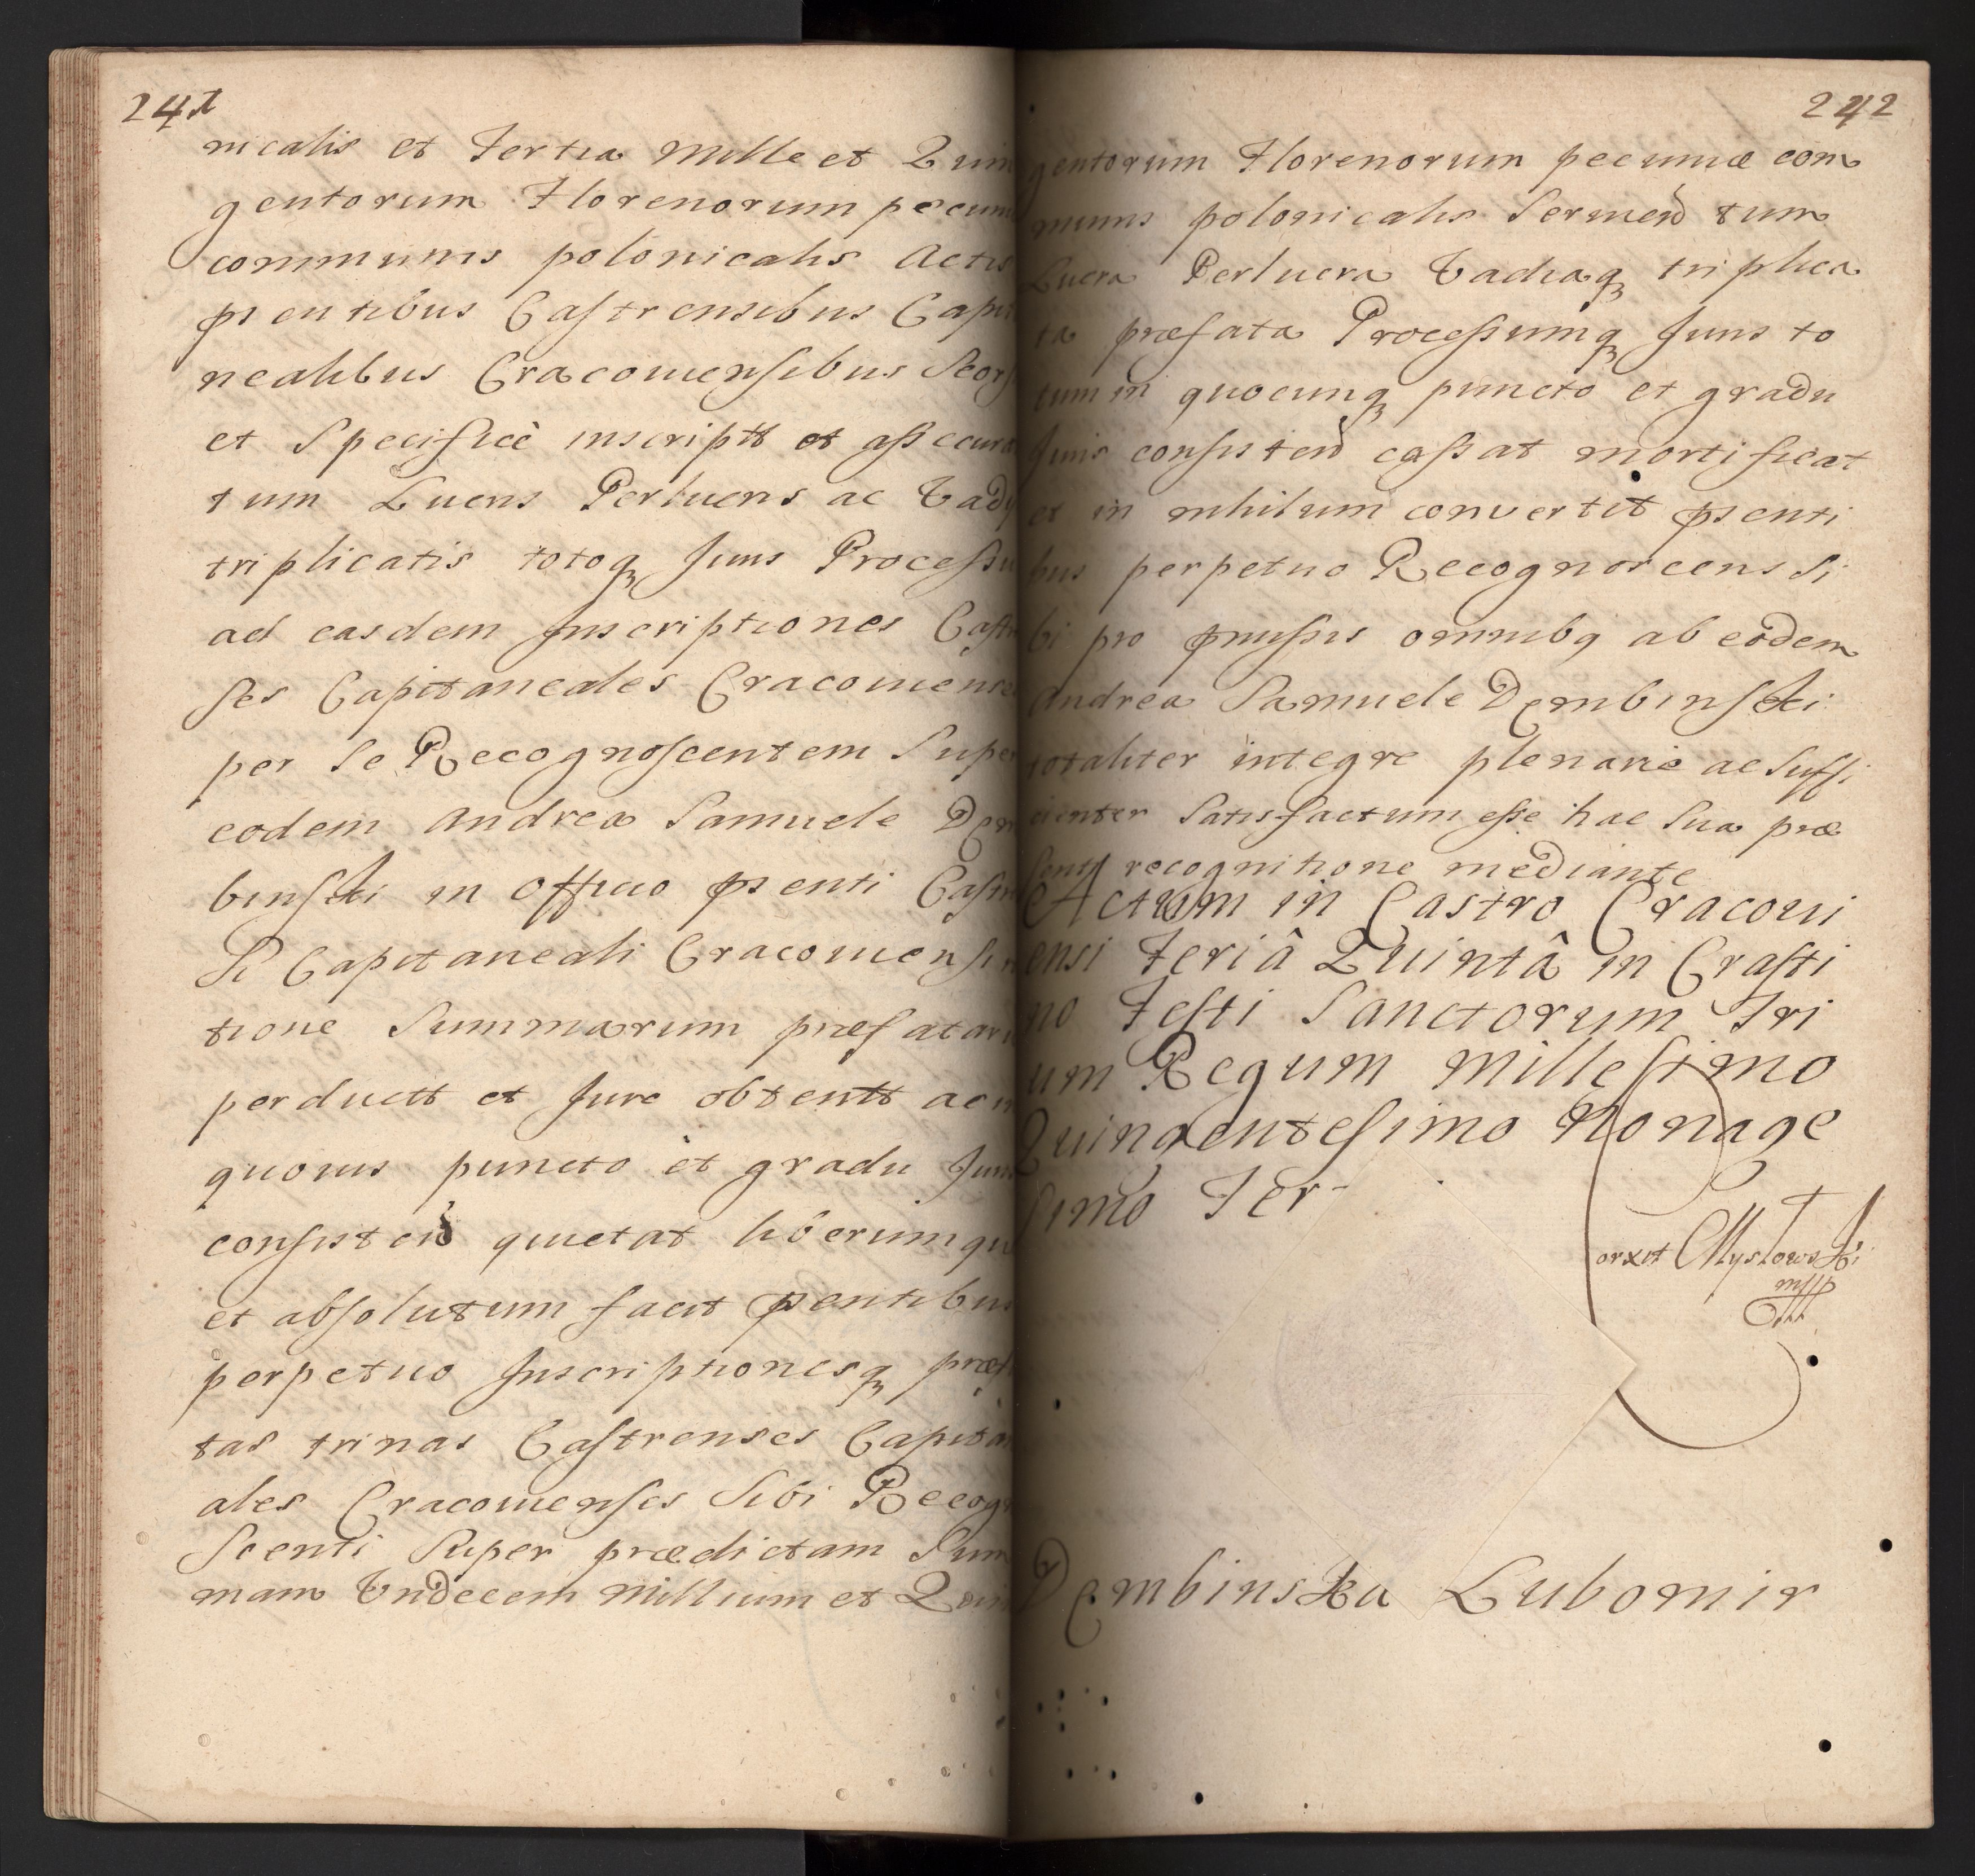 241
nicalis et Tertia Mille et Quin
gentorum Florenorum pecun
communis polonicalis Actis
psentibus Castrensibus Capit
nealibus Cracouiensibus Seors
et Specificè inscriptt et assecura
tum Lucris Perlucris ac Vadÿ
triplicatis totoq Juris Processu
ad easdem Inscriptiones Castr
ses Capitaneales Cracouiense
per Se Recognoscentem Super
eodem Andrea Samuele Dem
binski in Officio psenti Castr
Si Capitaneali Cracouiensi
tione Summarum præfatar
perductt et Jure obtentt ac in
quouis puncto et gradu Juris
consisteñ quietat liberumqu
et absolutum facit psentibus
perpetuo Inscriptionesq præf
tas trinas Castrenses Capitan
ales Cracouienses Sibi Recogn
Scenti Super prædictam Sum
mam Vndecem Millium et Quin
242
gentorum Florenorum pecuniæ com
munis polonicalis Sermeñ tum
Lucra Perlucra Vadiaq triplica
ta præfata Processumq Juris to
tum in quocunq puncto et gradu
Juris consisteñ cassat mortificat
et in nihilum conuertit psenti
bus perpetuo Recognoscens Si
bi pro pmissis omnibq ab eodem
Andrea Samuele Dembinski
totaliter integre plenarie ac Suffi
cienter Satisfactum esse hac Sua præ
Senti recognitione mediante
Actum in Castro Cracoui
ensi Feriâ Quintâ in Crasti
no Festi Sanctorum Tri
um Regum Millesimo
Quingentesimo Nonage
Simo Ter-
orxit Mysłowski
mpp
Dembinska Lubomir